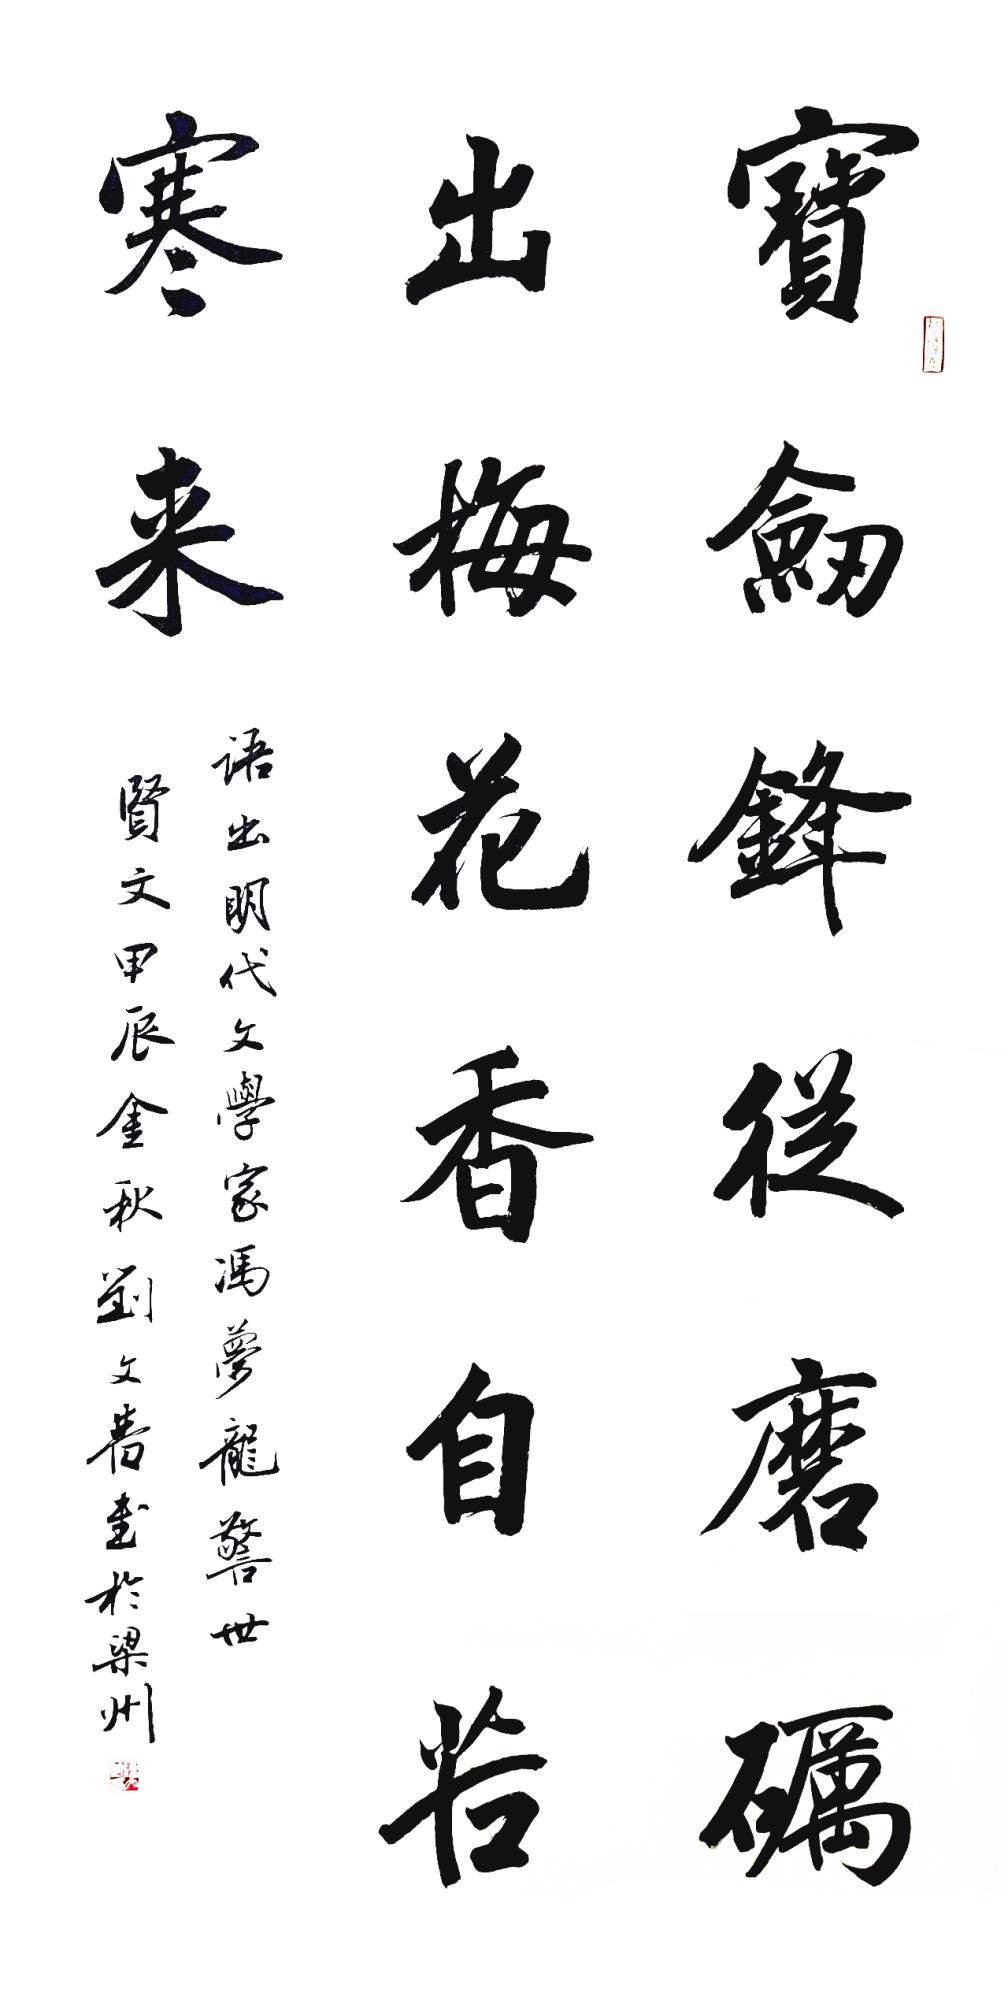 寶劒鋒從磨礪
出梅花香自苦
寒来
语出明代文學家馮夢龍警世
賢文甲辰金秋劉文書於梁州